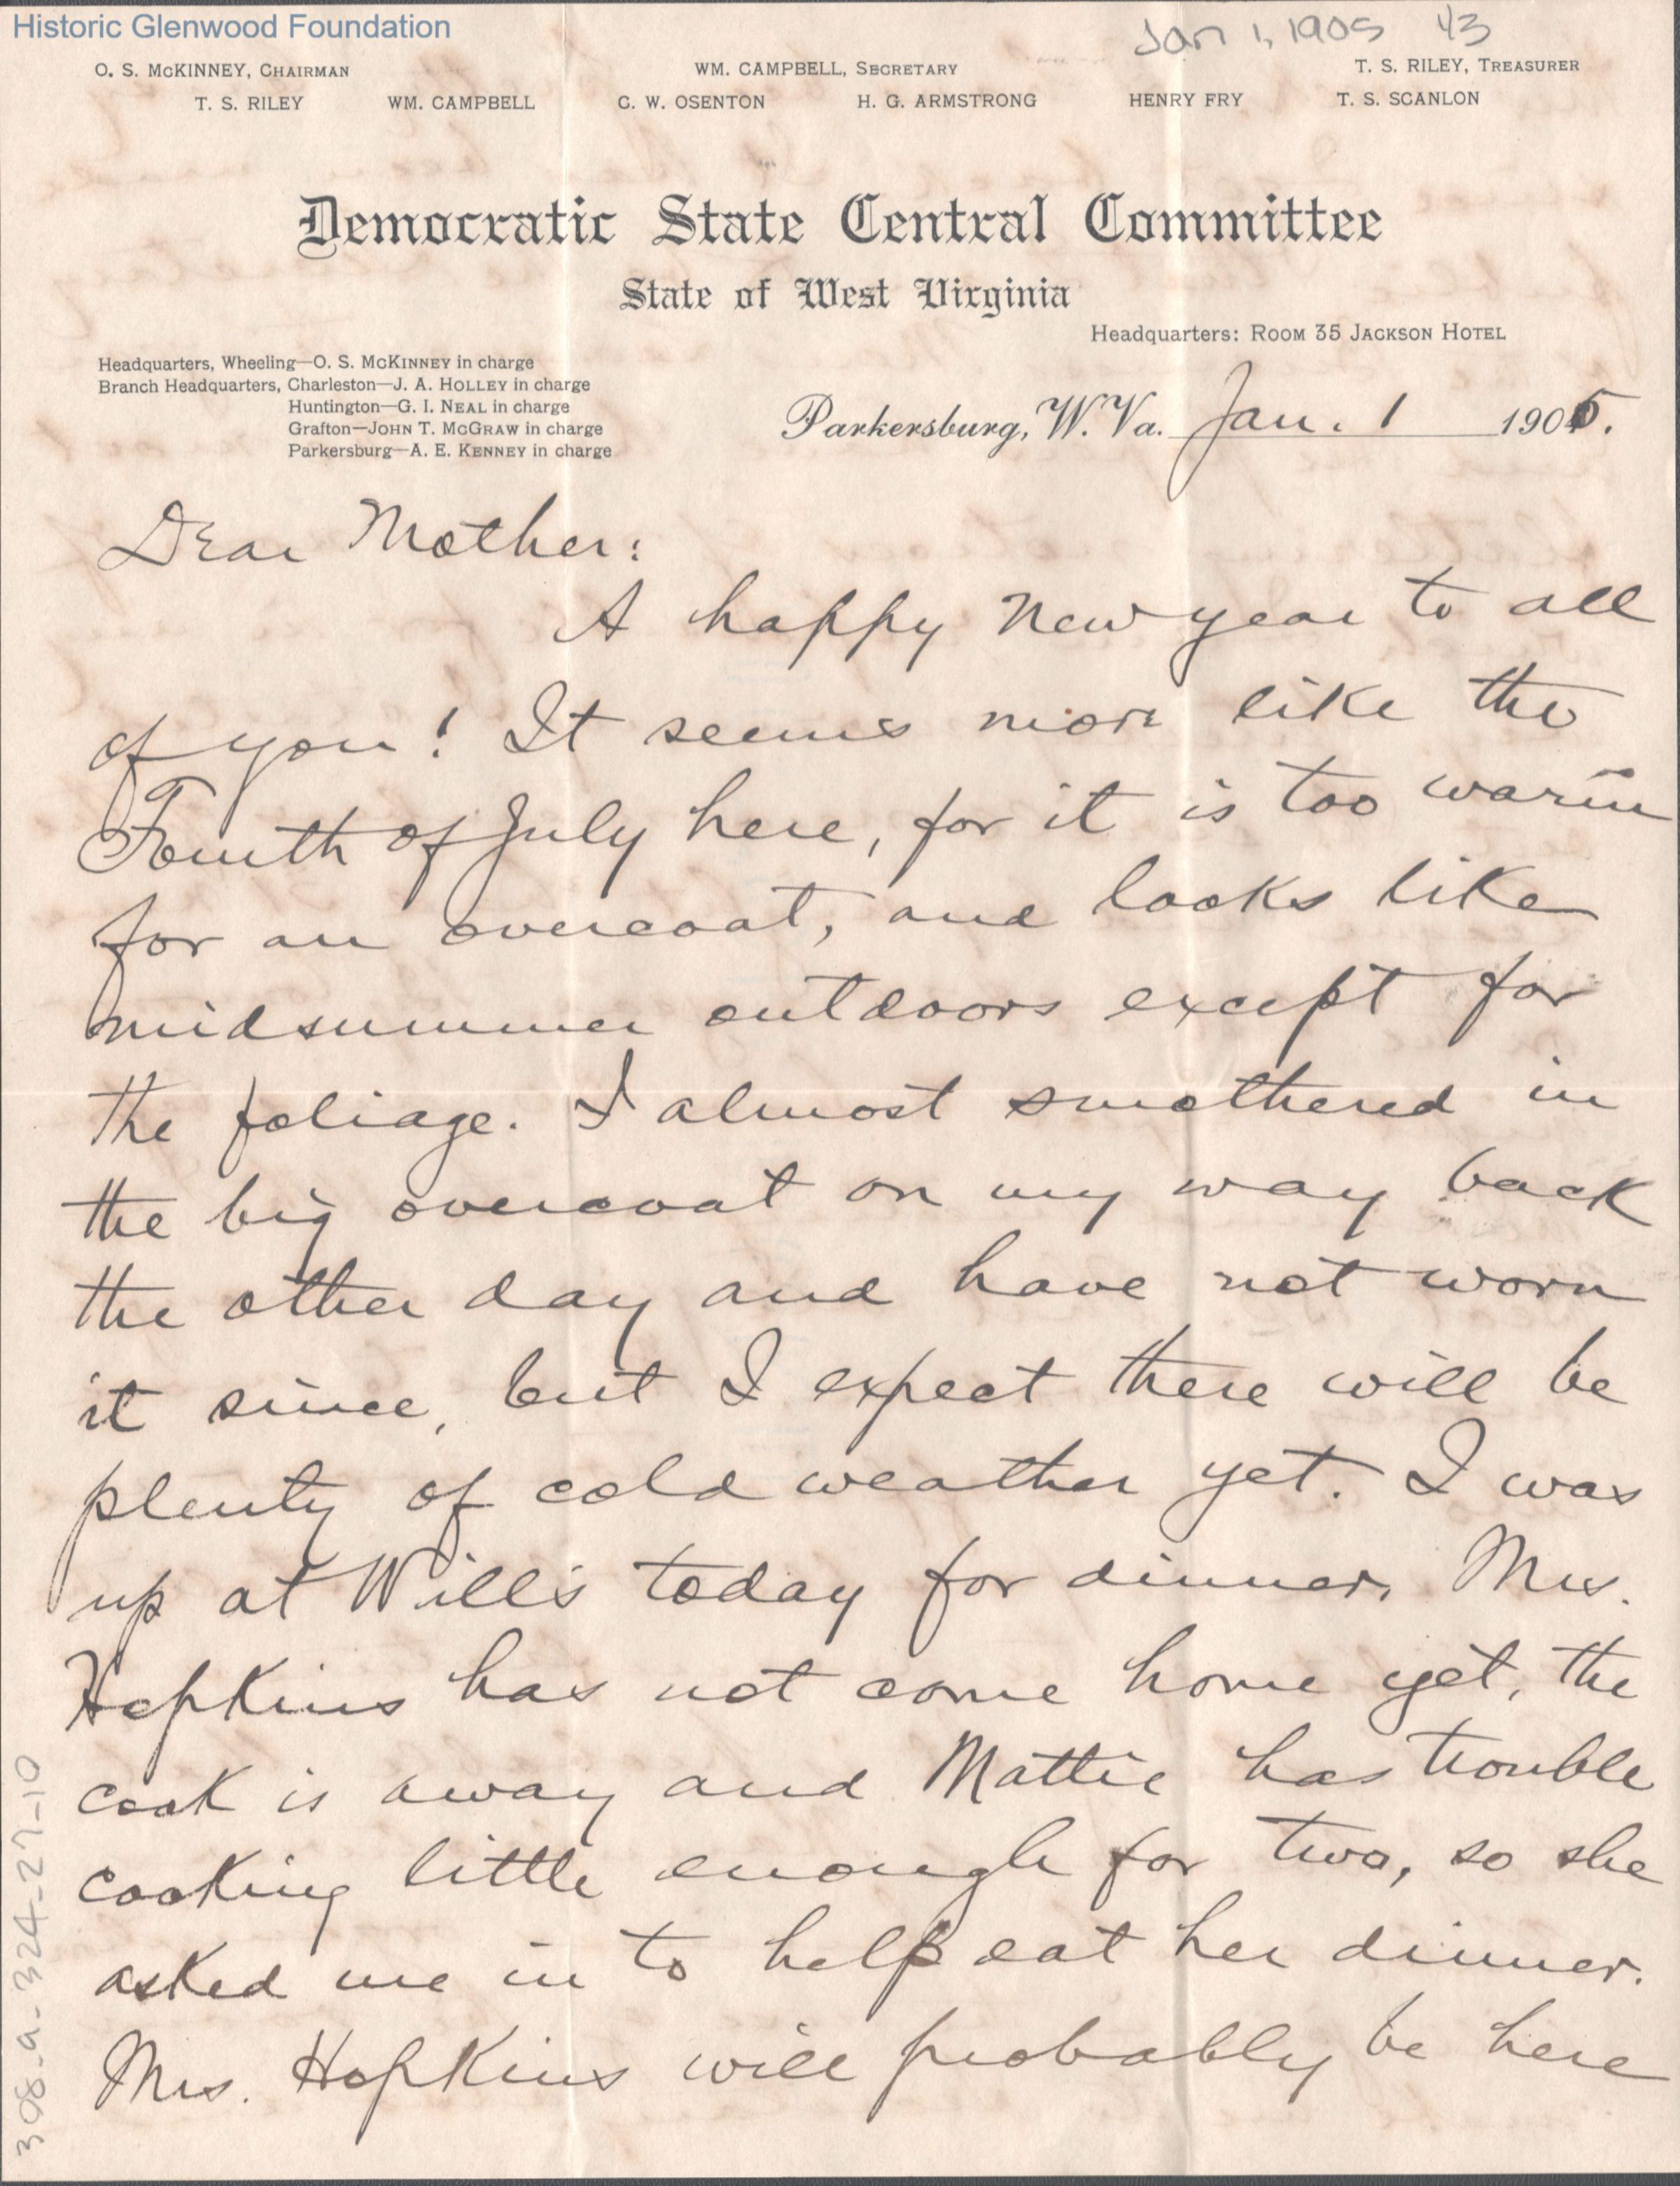 Historic Glenwood Foundation
Jan 1, 1905 43
O. S. McKINNEY, CHAIRMAN WM. CAMPBELL, SECRETARY T. S. RILEY, TREASURER
T. S. RILEY WM. CAMPBELL C. W. OSENTON H. G. ARMSTRONG HENRY FRY T. S. SCANLON
Democratic State Central Committee
State of West Virginia
Headquarters: ROOM 35 JACKSON HOTEL
Headquarters, Wheeling—O. S. McKINNEY in charge
Branch Headquarters, Charleston—J. A. HOLLEY in charge
Huntington—G. I. NEAL in charge
Grafton—JOHN T. McGRAW in charge
Parkersburg—A. E. KENNEY in charge
Parkersburg, W. Va. Jan. 1 1905.
Dear Mother:
A happy New year to all
of you! It seems more like the
Fourth of July here, for it is too warm
for an overcoat, and looks like
midsummer outdoors except for
the foliage. I almost smothered in
the big overcoat on my way back
the other day and have not worn
it since, but I expect there will be
plenty of cold weather yet. I was
up at Will's today for dinner. Mrs.
Hopkins has not come home yet, the
cook is away and Mattie has trouble
cooking little enough for two, so she
asked me in to help eat her dinner.
Mrs. Hopkins will probably be here
308-a-324-27-10